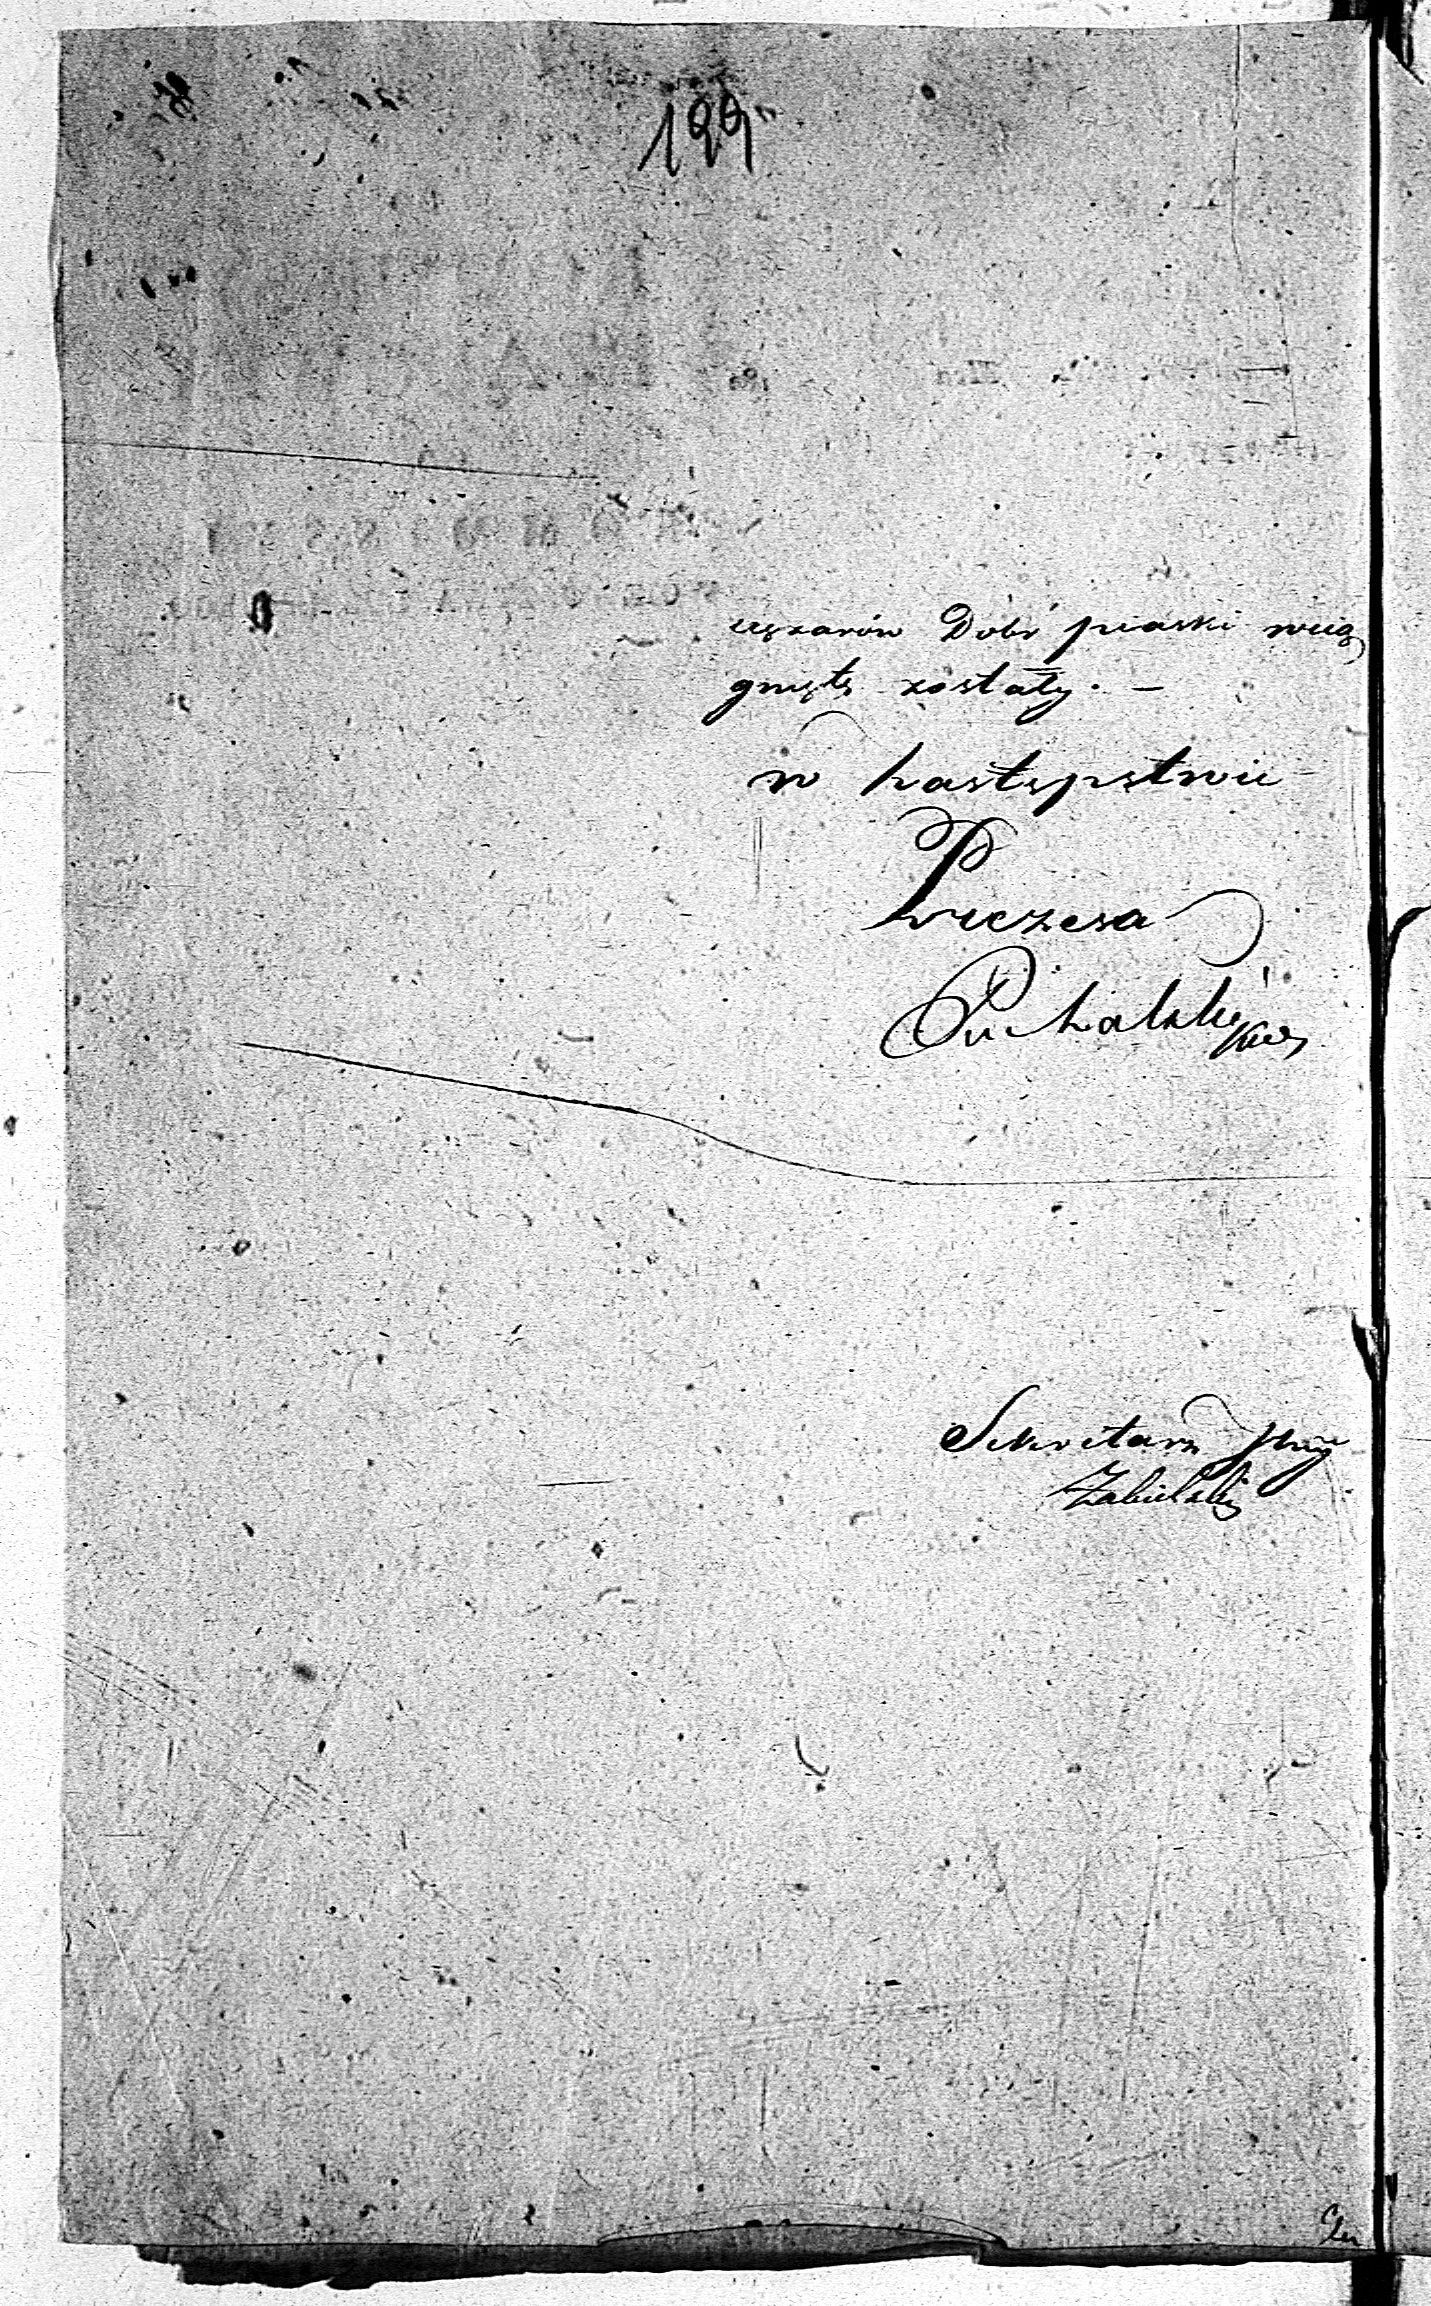 199
ciężarów Dóbr piaski wcią
gnięte zostały. —
w Zastępstwie
Prezesa
Puchalski
Sekretarz
Zabielski